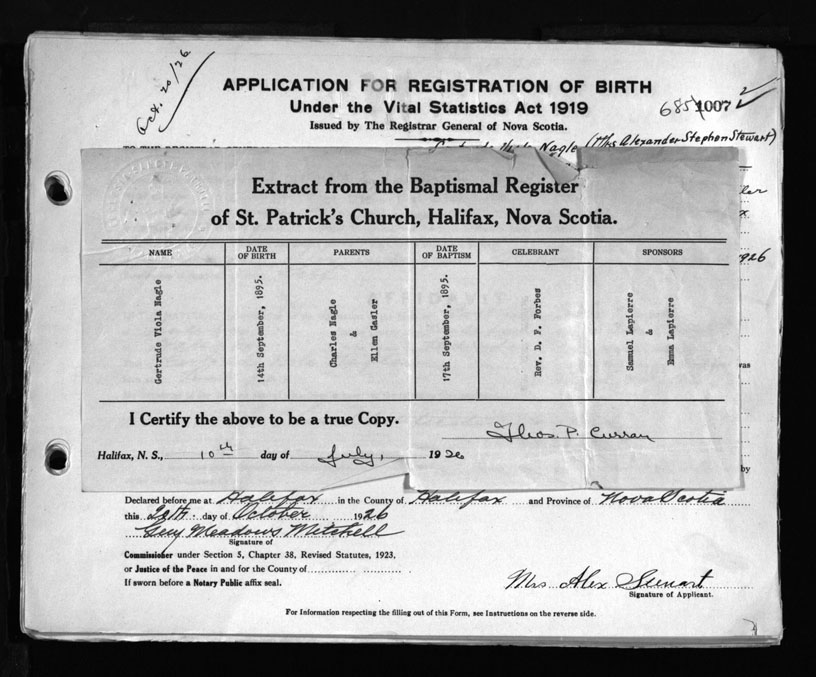 Oct. 20/26
APPLICATION FOR REGISTRATION OF BIRTH
Under the Vital Statistics Act 1919
Issued by The Registrar General of Nova Scotia.
685 1007 2
Nagle (Mrs Alexander Stephen Stewart)
Extract from the Baptismal Register
of St. Patrick's Church, Halifax, Nova Scotia.
NAME DATE OF BIRTH PARENTS DATE OF BAPTISM CELEBRANT SPONSORS
Gertrude Viola Nagle
14th September, 1895.
Charles Nagle
&
Ellen Gasler
17th September, 1895.
Rev. D. F. Forbes
Samuel Lapierre
&
Emma Lapierre
926
was
I Certify the above to be a true Copy.
Thos. P. Curran
Halifax, N. S., 10th day of July, 1926
by
Declared before me at Halifax in the County of Halifax and Province of Nova Scotia
this 20th day of October 1926
Guy Meadows Mitchell
Signature of
Commissioner under Section 5, Chapter 38, Revised Statutes, 1923.
or Justice of the Peace in and for the County of
If sworn before a Notary Public affix seal.
Mrs Alex Stewart
Signature of Applicant.
For Information respecting the filling out of this Form, see Instructions on the reverse side.